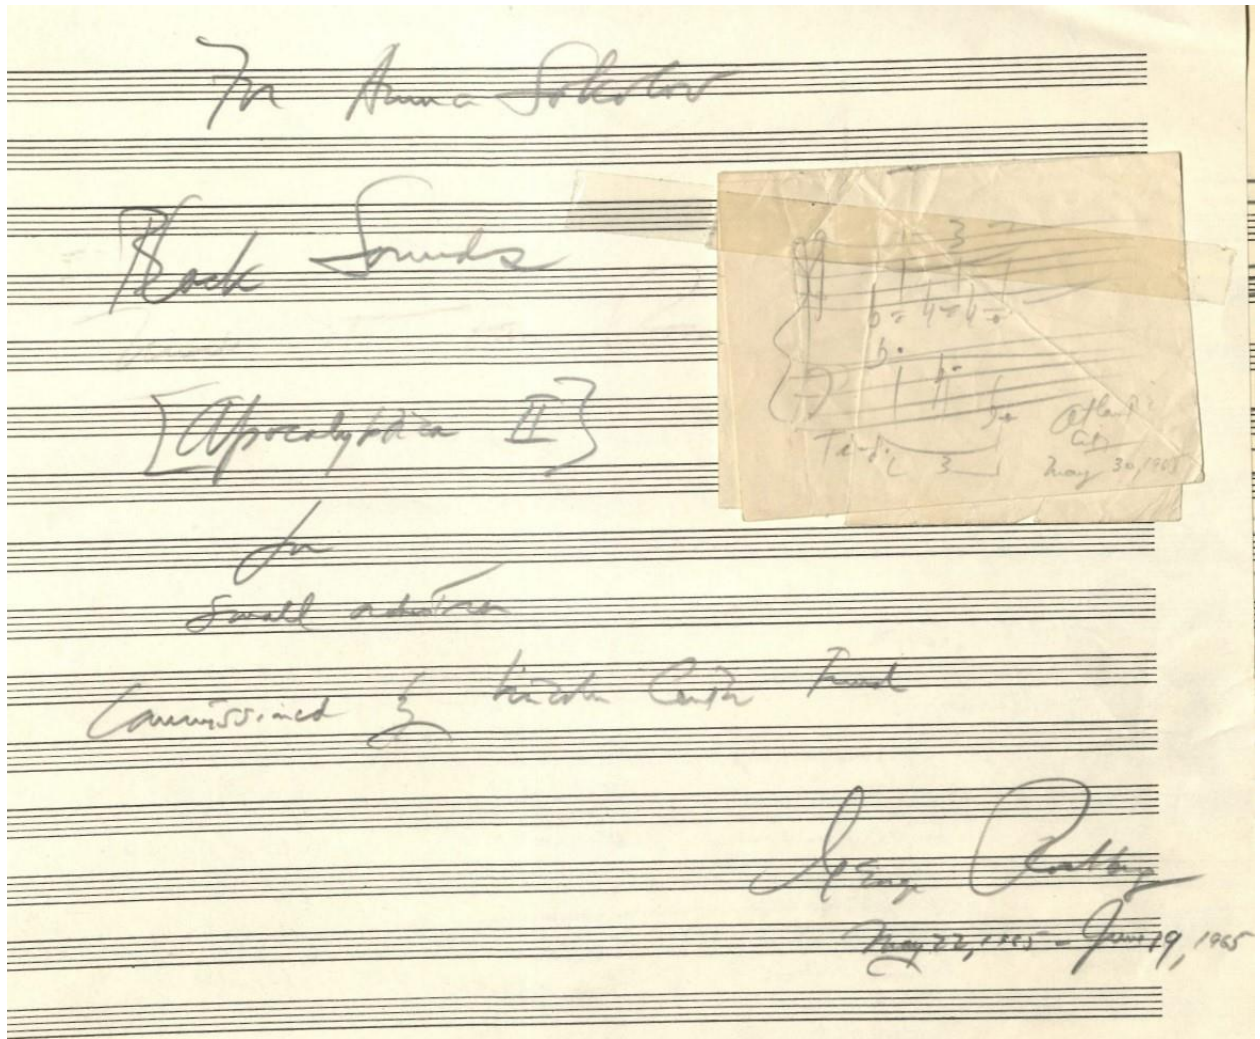 For Anna Sokolow
Black Sounds
[Apocalyptica II]
for
small orchestra
Commissioned by Lincoln Center Fund
George Rochberg
May 22, 1965 - June 19, 1965
3
3
Atlantic
City
May 30, 1965